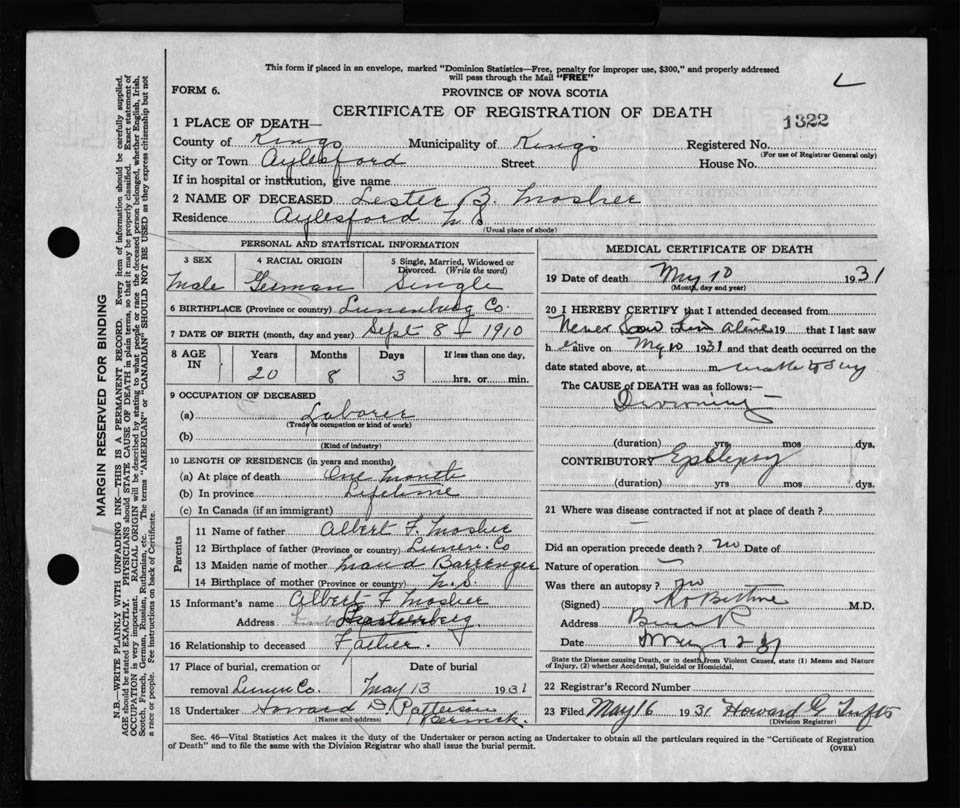 This form if placed in an envelope, marked "Dominion Statistics—Free, penalty for improper use, $300," and properly addressed
will pass through the Mail "FREE"
FORM 6.
PROVINCE OF NOVA SCOTIA
CERTIFICATE OF REGISTRATION OF DEATH
1322
1 PLACE OF DEATH—
County of Kings Municipality of Kings Registered No.
(For use of Registrar General only)
City or Town Aylesford Street House No.
If in hospital or institution, give name
2 NAME OF DECEASED Lester B. Mosher
Residence Aylesford N S
(Usual place of abode)
MARGIN RESERVED FOR BINDING
N.B.—WRITE PLAINLY WITH UNFADING INK—THIS IS A PERMANENT RECORD. Every item of information should be carefully supplied.
AGE should be stated EXACTLY. PHYSICIANS should STATE CAUSE OF DEATH in plain terms, so that it may be properly classified. Exact statement of
OCCUPATION is very important. RACIAL ORIGIN will be described by stating to what people or race the deceased person belonged, whether English, Irish,
Scotch, French, German, Russian, Ruthenian, etc. The terms "AMERICAN" or "CANADIAN" SHOULD NOT BE USED as they express citizenship but not
a race or people. See instructions on back of Certificate.
PERSONAL AND STATISTICAL INFORMATION
3 SEX 4 RACIAL ORIGIN 5 Single, Married, Widowed or
Divorced. (Write the word)
Male German Single
6 BIRTHPLACE (Province or country) Lunenburg Co.
7 DATE OF BIRTH (month, day and year) Sept 8 1910
8 AGE IN Years Months Days If less than one day,
20 8 3 hrs. or min.
9 OCCUPATION OF DECEASED
(a) Laborer
(Trade or occupation or kind of work)
(b)
(Kind of industry)
10 LENGTH OF RESIDENCE (in years and months)
(a) At place of death One month
(b) In province Lifetime
(c) In Canada (if an immigrant)
Parents
11 Name of father Albert F. Mosher
12 Birthplace of father (Province or country) Lunen. Co
13 Maiden name of mother Maud Barrenger
14 Birthplace of mother (Province or country) N.S.
15 Informant's name Albert F Mosher
Address
16 Relationship to deceased Father.
17 Place of burial, cremation or Date of burial
removal Lunen Co. May 13 1931
18 Undertaker Howard D. Patterson
(Name and address) Berwick.
MEDICAL CERTIFICATE OF DEATH
19 Date of death May 10 1931
(Month, day and year)
20 I HEREBY CERTIFY that I attended deceased from
Never Saw him alive 19 that I last saw
h alive on May 10 1931 and that death occurred on the
date stated above, at m
The CAUSE OF DEATH was as follows:—
Drowning
(duration) yrs. mos. dys.
CONTRIBUTORY Epilepsy
(duration) yrs. mos. dys.
21 Where was disease contracted if not at place of death?
Did an operation precede death? no Date of
Nature of operation
Was there an autopsy? no
(Signed) M.D.
Address
Date May 12 31
State the Disease causing Death, or in death from Violent Causes, state (1) Means and Nature
of Injury, (2) whether Accidental, Suicidal or Homicidal.
22 Registrar's Record Number
23 Filed May 16 1931 Howard G Tufts
(Division Registrar)
Sec. 46—Vital Statistics Act makes it the duty of the Undertaker or person acting as Undertaker to obtain all the particulars required in the "Certificate of Registration
of Death" and to file the same with the Division Registrar who shall issue the burial permit.
(OVER)